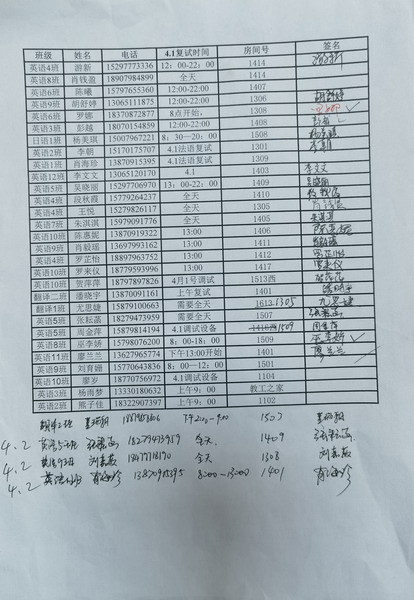 班级 姓名 电话 4.1复试时间 房间号 签名
英语4班 游新 15297773336 12：00-22：00 1414
英语8班 肖钱盈 18907984899 全天 1414
英语6班 陈曦 15797655360 12:00-22:00 1407
英语9班 胡舒婷 13065111875 12:00-22:00 1306 胡舒婷
英语6班 罗娜 18370872877 8点开始： 1308
英语3班 彭越 18070154859 12:00-22:00 1408 彭越
日语1班 杨美琪 15007967221 8：30—20：00 1508 杨美琪
英语2班 李朝 15170175707 4.1去语复试 1301 李朝
英语11班 肖海珍 13870915395 4.1去语复试 1309
英语12班 李文文 13065120170 4.1 1403 李文文
英语5班 吴晓丽 15297706970 13：00-22：00 1409 吴晓丽
英语4班 段秋霞 15779264237 全天 1410 段秋霞
英语4班 王悦 15279826117 全天 1405
英语7班 朱淇淇 15979091776 全天 1406 朱淇淇
英语10班 陈惠妮 13870919322 13：00 1406 陈惠妮
英语9班 肖毅瑶 13697993162 13：00 1411
英语4班 罗芷怡 18897963752 13：00 1412 罗芷怡
英语10班 罗来仪 18779593996 13：00 1417 罗来仪
英语10班 贺萍萍 18797897826 4月1号调试 1513西 贺萍萍
翻译二班 潘晓宇 13870091161 上午复试 1401
翻译1班 尤思婕 15079100663 需要全天 1612 1305 尤思婕
英语5班 张耘菡 18279473959 需要全天 1507 张耘菡
英语5班 周金萍 15879814194 4.1调试设备 1416西 1509 周金萍
英语8班 巫李娇 15798076200 8：00-18：00 1509 巫李娇
英语11班 廖兰兰 13627965774 下午13:00开始 1401 廖兰兰
英语9班 刘育姗 15770643836 8：00—12：00 1501
英语10班 廖岁 18770756972 4.1调试设备 1104
英语3班 杨雨梦 13330180632 上午9：00 教工之家
英语2班 熊子佳 18322907397 上午9：00 1102
1503
4.2 英语5班 张耘菡 18279473959 全天 1409 张耘菡
4.2 英语9班 全天 1308
4.2 英语11班 肖海珍 13870915395 8:00-13:00 1401 肖海珍